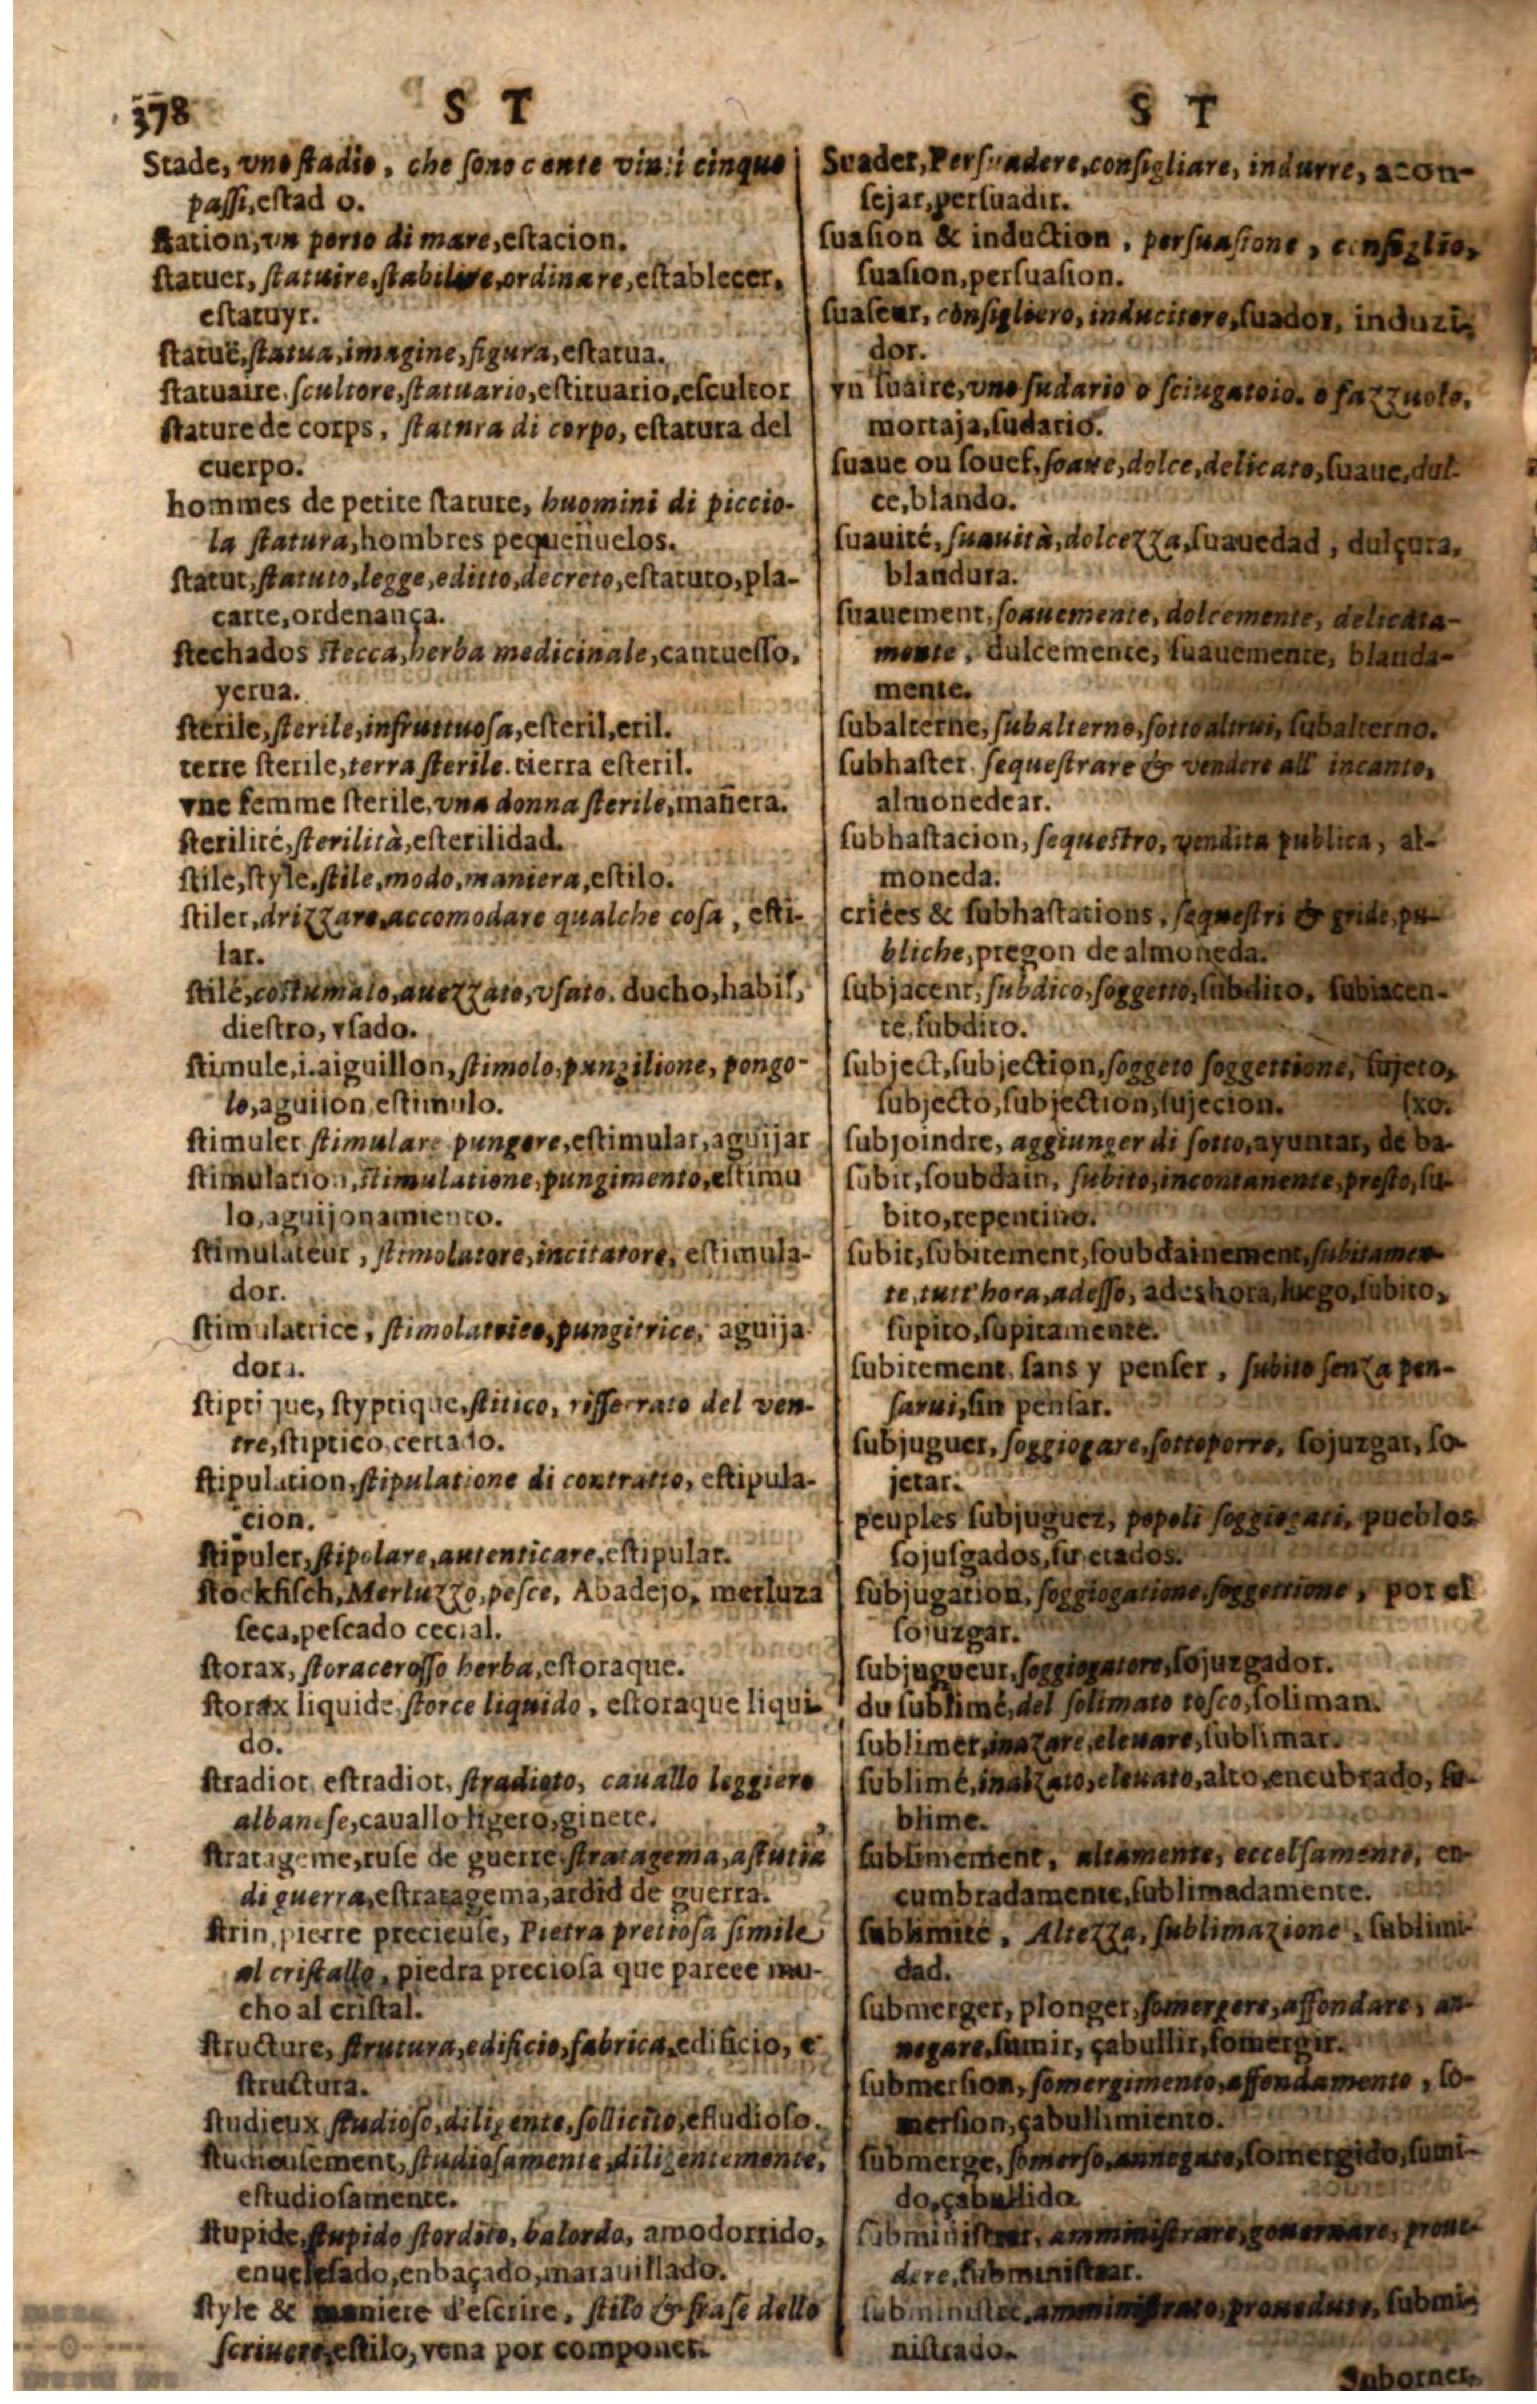 378
S T
Stade, vno stadio, che sono cento vinti cinque
passi, estad o.
station, vn porto di mare, estacion.
statuer, statuire, stabilire, ordinare, establecer,
estatuyr.
statuë, statua, imagine, figura, estatua.
statuaire. scultore, statuario, estituario, escultor
stature de corps, statura di corpo, estatura del
cuerpo.
hommes de petite stature, huomini di piccio-
la statura, hombres pequeñuelos.
statut, statuto, legge, editto, decreto, estatuto, pla-
carte, ordenança.
stechados stecca, herba medicinale, cantuesso,
yerua.
sterile, sterile, infruttuosa, esteril, eril.
terre sterile, terra sterile. tierra esteril.
vne femme sterile, vna donna sterile, mañera.
sterilité, sterilità, esterilidad.
stile, style, stile, modo, maniera, estilo.
stiler, drizzare, accomodare qualche cosa, esti-
lar.
stilé, costumato, auezzato, vsato. ducho, habil,
diestro, vsado.
stimule, i. aiguillon, stimolo, punzilione, pongo-
lo, aguijon, estimulo.
stimuler stimulare pungere, estimular, aguijar
stimulation, stimulatione, pungimento, estimu
lo, aguijonamiento.
stimulateur, stimolatore, incitatore, estimula-
dor.
stimulatrice, stimolatrice, pungitrice, aguija-
dora.
stiptique, styptique, stitico, risserrato del ven-
tre, stiptico, cerrado.
stipulation, stipulatione di contratto, estipula-
cion.
stipuler, stipolare, autenticare, estipular.
stockfisch, Merluzzo, pesce, Abadejo, merluza
seca, pescado cecial.
storax, storacerosso herba, estoraque.
storax liquide, storce liquido, estoraque liqui-
do.
stradiot, estradiot, stradioto, cauallo leggiero
albanese, cauallo ligero, ginete.
stratageme, ruse de guerre, stratagema, astutia
di guerra, estratagema, ardid de guerra.
strin, pierre precieuse, Pietra pretiosa simile
al cristallo, piedra preciosa que parece mu-
cho al cristal.
structure, strutura, edificio, fabrica, edificio, e
structura.
studieux studioso, diligente, sollicito, estudioso.
studieusement, studiosamente, diligentemente,
estudiosamente.
stupide, stupido stordito, balordo, amodorrido,
enuelesado, enbaçado, marauillado.
style & maniere d'escrire, stilo & frase dello
scriuere, estilo, vena por componer.
S T
Suader, Persuadere, consigliare, indurre, acon-
sejar, persuadir.
suasion & induction, persuasione, consiglio,
suasion, persuasion.
suaseur, consigliero, inducitore, suador, induzi-
dor.
vn suaire, vno sudario o sciugatoio. o fazzuolo,
mortaja, sudario.
suaue ou souef, soaue, dolce, delicato, suaue, dul-
ce, blando.
suauité, suauità, dolcezza, suauedad, dulçura,
blandura.
suauement, soauemente, dolcemente, delicata-
mente, dulcemente, suauemente, blanda-
mente.
subalterne, subalterno, sotto altrui, subalterno.
subhaster. sequestrare & vendere all' incanto,
almonedear.
subhastacion, sequestro, vendita publica, al-
moneda.
criées & subhastations, sequestri & gride, pu-
bliche, pregon de almoneda.
subjacent, subdico, soggetto, subdito, subiacen-
te, subdito.
subject, subjection, soggeto soggettione, sujeto,
subjecto, subjection, sujecion. (xo.
subjoindre, aggiunger di sotto, ayuntar, de ba-
subit, soubdain, subito, incontanente, presto, su-
bito, repentino.
subit, subitement, soubdainement, subitamen-
te, tutt'hora, adesso, adeshora, luego, subito,
supito, supitamente.
subitement sans y penser, subito senza pen-
sarui, sin pensar.
subjuguer, soggiogare, sottoporre, sojuzgar, so-
jetar.
peuples subjuguez, popoli soggiogati, pueblos
sojusgados, sujetados.
subjugation, soggiogatione, soggettione, por el
sojuzgar.
subjugueur, soggiogatore, sojuzgador.
du sublimé, del solimato tosco, soliman.
sublimer, inazare, eleuare, sublimar.
sublimé, inalzato, eleuato, alto, encubrado, su-
blime.
sublimement, altamente, eccelsamente, en-
cumbradamente, sublimadamente.
sublimité, Altezza, sublimazione, sublimi-
dad.
submerger, plonger, somergere, affondare, an-
negare, sumir, çabullir, somergir.
submersion, somergimento, affondamento, so-
mersion, çabullimiento.
submerge, somerso, annegato, somergido, sumi-
do, çabullido.
subministrer, amministrare, gouernare, proue-
dere, subministrar.
subministré, amministrato, proueduto, submi-
nistrado.
Suborner,